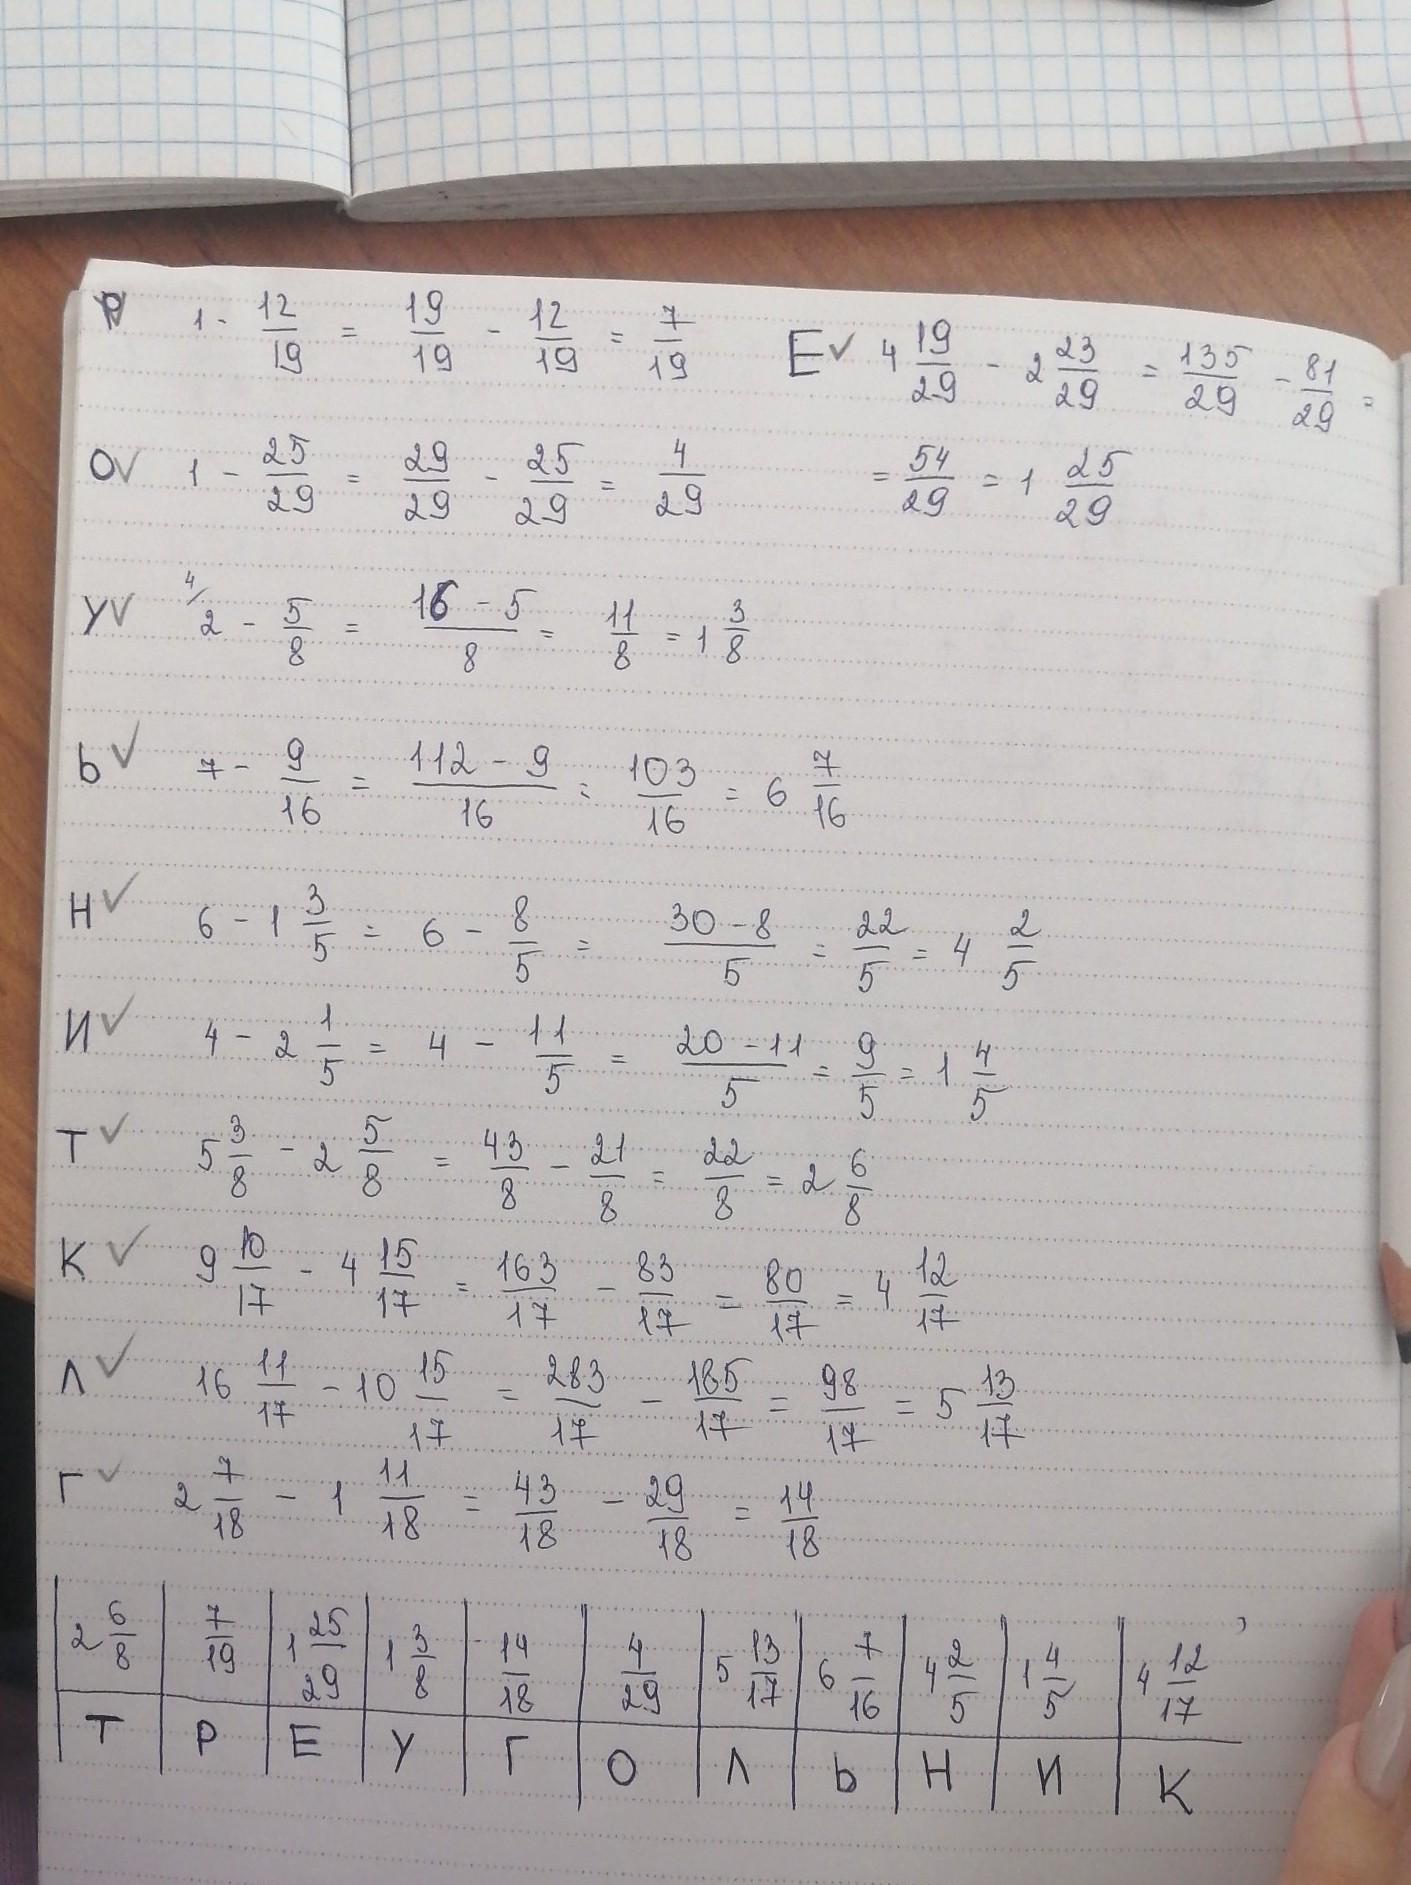 Р 1 - 12/19 = 19/19 - 12/19 = 7/19
Е✓ 4 19/29 - 2 23/29 = 135/29 - 81/29 =
= 54/29 = 1 25/29
О✓ 1 - 25/29 = 29/29 - 25/29 = 4/29
У✓ 4/ 2 - 5/8 = 16 - 5/8 = 11/8 = 1 3/8
Ь✓ 7 - 9/16 = 112 - 9/16 = 103/16 = 6 7/16
Н✓ 6 - 1 3/5 = 6 - 8/5 = 30 - 8/5 = 22/5 = 4 2/5
И✓ 4 - 2 1/5 = 4 - 11/5 = 20 - 11/5 = 9/5 = 1 4/5
Т✓ 5 3/8 - 2 5/8 = 43/8 - 21/8 = 22/8 = 2 6/8
К✓ 9 10/17 - 4 15/17 = 163/17 - 83/17 = 80/17 = 4 12/17
Л✓ 16 11/17 - 10 15/17 = 283/17 - 185/17 = 98/17 = 5 13/17
Г✓ 2 7/18 - 1 11/18 = 43/18 - 29/18 = 14/18
2 6/8 7/19 1 25/29 1 3/8 14/18 4/29 5 13/17 6 7/16 4 2/5 1 4/5 4 12/17
Т Р Е У Г О Л Ь Н И К